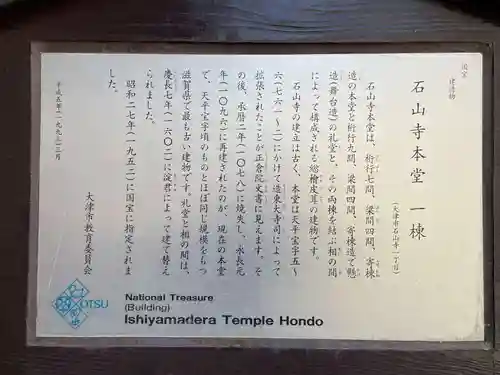 国宝
建造物
石山寺本堂 一棟
(大津市石山寺一丁目)
石山寺本堂は、桁行七間、梁間四間、寄棟
造の本堂と桁行九間、梁間四間、寄棟造で懸
造(舞台造)の礼堂と、その両棟を結ぶ相の間
によって構成される総檜皮葺の建物です。
石山寺の建立は古く、本堂は天平宝字五～
六(七六一～二)にかけて造東大寺司によって
拡張されたことが正倉院文書に見えます。そ
の後、承暦二年(一〇七八)に焼失し、永長元
年(一〇九六)に再建されたのが、現在の本堂
で、天平宝字頃のものとほぼ同じ規模をもつ
滋賀県で最も古い建物です。礼堂と相の間は、
慶長七年(一六〇二)に淀君によって建て替え
られました。
昭和二七年(一九五二)に国宝に指定されま
した。
平成五年(一九九三)三月
大津市教育委員会
OTSU
National Treasure
(Building)
Ishiyamadera Temple Hondo